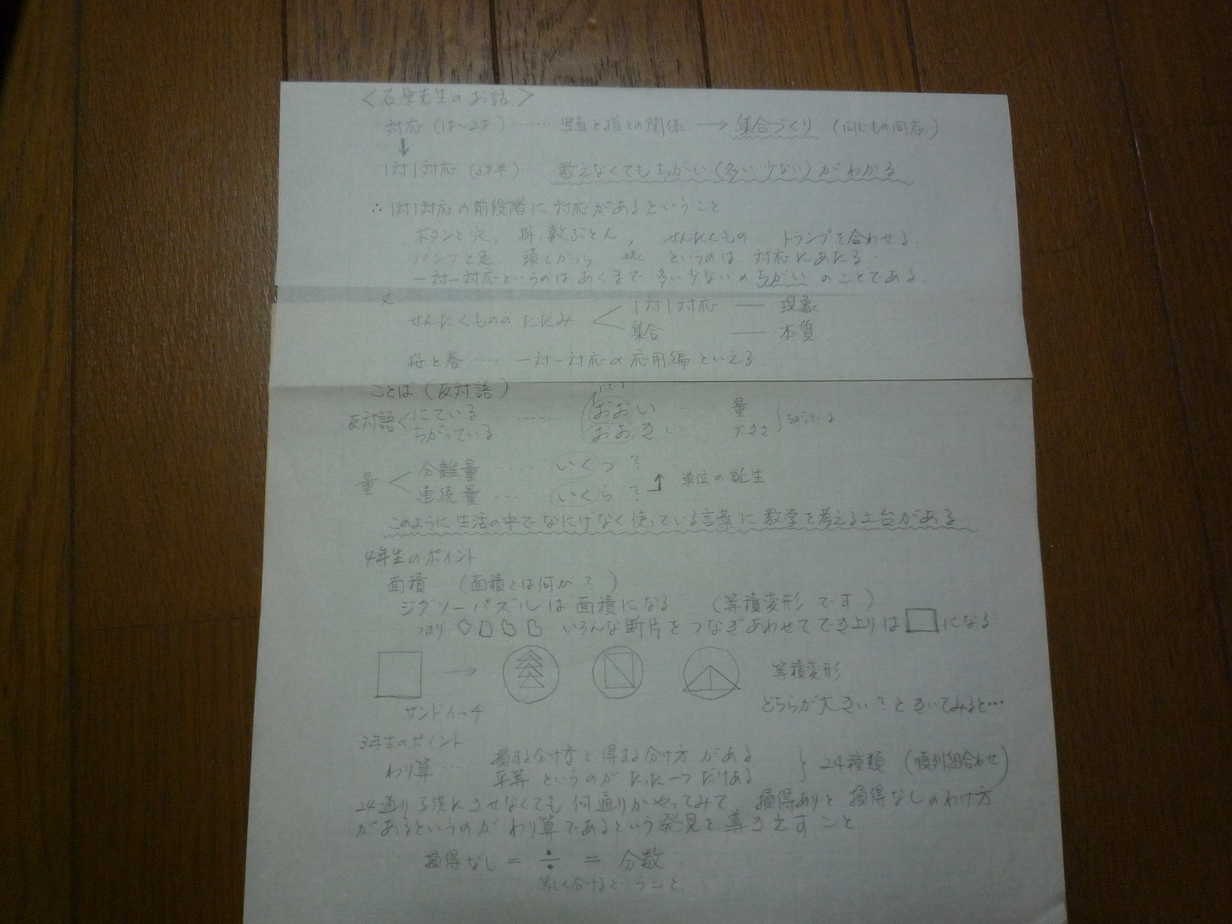 ＜石原先生のお話＞
対応 …… と の関係 → 集合づくり (同じもの同志)
↓
1対1対応 数えなくてもちがい(多い少ない)がわかる
∴ 1対1対応の前段階に対応があるということ
ボタンと穴, 敷ぶとん, せんたくもの トランプを合わせる.
パンツと足 頭とかつら etc というのは 対応にあたる.
一対一対応というのはあくまで 多い少ないのちがい のことである.
せんたくものの たたみ ＜ 1対1対応 ── 現象
集合 ── 本質
桜と春 …… 一対一対応の応用編といえる
ことば (反対語)
反対語＜ にている …… おおい 量
ちがっている おおきい
量 ＜ 分離量 …… いくつ？
連続量 … いくら？ 単位の誕生
このように生活の中でなにげなく使っている言葉に数学を考える土台がある
4年生のポイント
面積 (面積とは何か？)
ジグソーパズルは面積になる (等積変形です)
つまり いろんな断片をつなぎあわせてでき上りは□になる
□ → 等積変形
サンドイッチ どちらが大きい？ときいてみると…
3年生のポイント
わり算 … 損する分け方と得する分け方がある
平等というのがたった一つだけある } 24種類 (順列組合わせ)
24通り全にさせなくても何通りかやってみて 損得ありと損得なしのわけ方
があるというのがわり算であるという発見を導き出すこと
損得なし ＝ ÷ ＝ 分数
等しく分けるということ